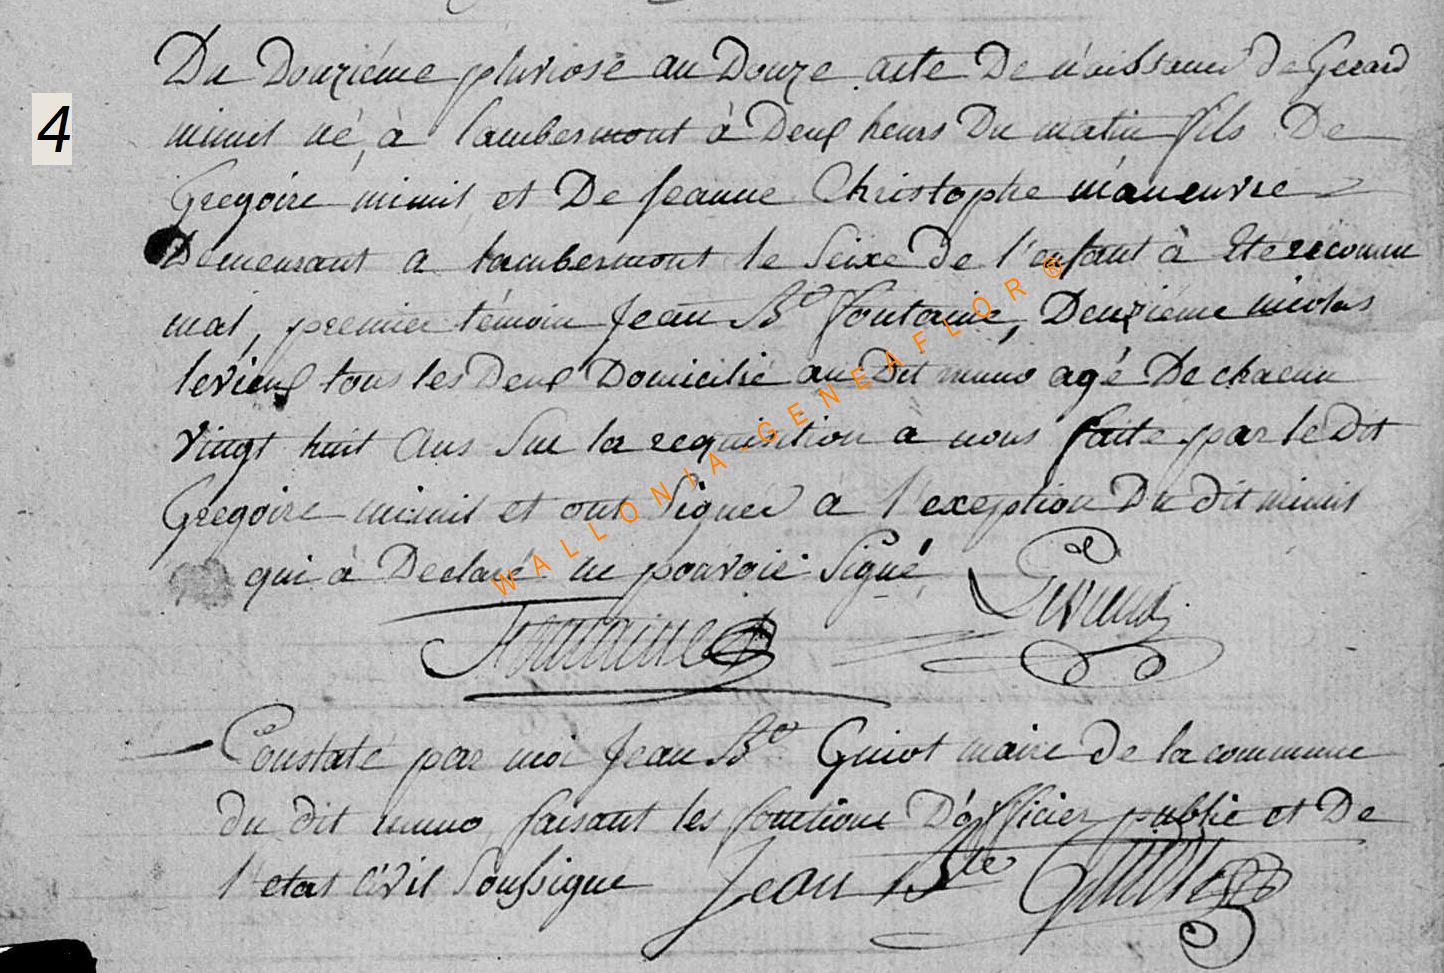 4
Du Douziéme pluviose an Douze acte De naissance De Gerard
mimil né, à lambermont à Deux heurs Du matin fils De
Gregoire mimil et De Jeanne Christophe manœuvre
Demeurant a lambermont le Seixe De l'enfant à Eté reconnu
mal, premier témoin Jean Bte fontaine, Deuxième nicolas
levieux tous les Deux Domicilié au Dit muno agé De chacun
vingt huit Ans Sur la requisition a nous faite par le Dit
Gregoire mimil et ont Signer à l'exeption Du dit mimil
qui à Declaré ne pouvoir Signé
Fontaine
Constaté par moi Jean Bte Guiot maire de la commune
du dit muno faisant les fonctions D'officier public et De
l'etat Civil Soussigné Jean Bte Guiot
WALLONIA-GENEAFLOR ®